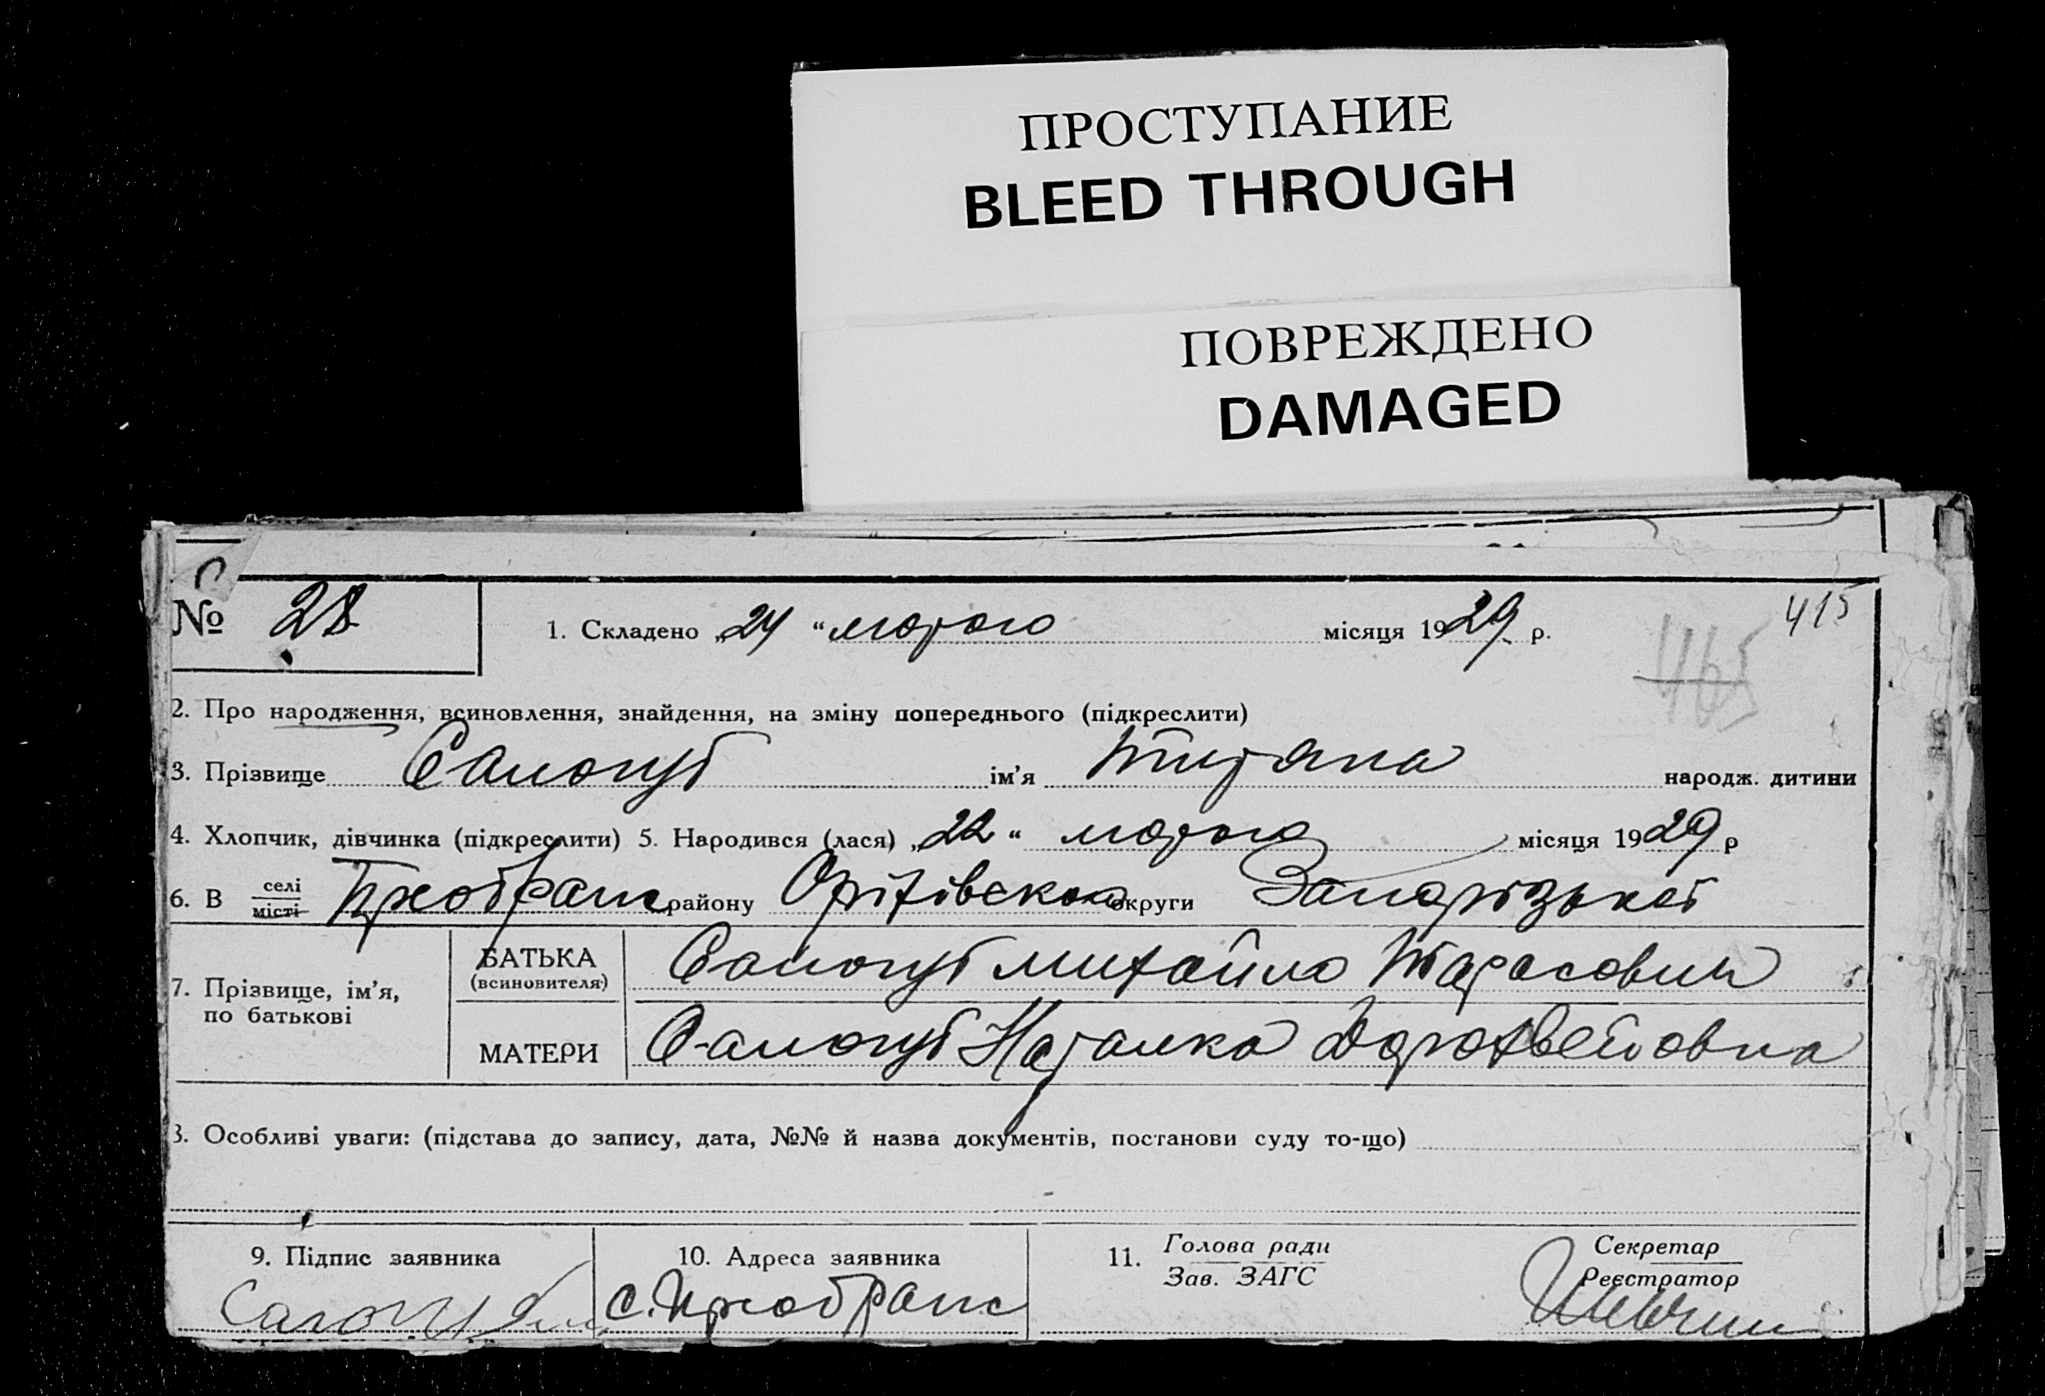 ПРОСТУПАНИЕ
BLEED THROUGH
ПОВРЕЖДЕНО
DAMAGED
415
465
№ 28 1. Складено „24“ лютого місяця 1929 р.
2. Про народження, всиновлення, знайдення, на зміну попереднього (підкреслити)
3. Прізвище Салогуб ім'я Титяна народж. дитини
4. Хлопчик, дівчинка (підкреслити) 5. Народився (лася) „22“ лютого місяця 1929 р
6. В селі місті Преображ району Оріхівского округи Запорізької
7. Прізвище, ім'я, по батькові
БАТЬКА (всиновителя) Салогуб Михайло Тарасович
МАТЕРИ Салогуб Наталка Дорофеевна
8. Особливі уваги: (підстава до запису, дата, №№ й назва документів, постанови суду то-що)
9. Підпис заявника 10. Адреса заявника 11. Голова ради Зав. ЗАГС Секретар Реєстратор
Салогуб с. Преображ